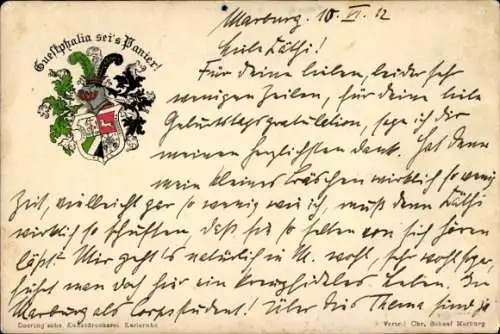 Guestphalia sei's Panier!
Marburg. 10. VI. 12
Liebe Käthi!
Für deine lieben, leider sehr
wenigen Zeilen, für deine liebe
Geburtstagsgratulation, sage ich dir
meinen herzlichsten Dank. Hat denn
mein kleines wirklich so wenig
Zeit, vielleicht gar so wenig wie ich, muß denn Käthi
wirklich so schuften, daß sie so selten von sich hören
läßt? Mir geht's natürlich in M. wohl, sehr wohl sogar,
führt man doch hier ein kreuzfideles Leben. In
Marburg als Corpsstudent! Über das Thema sind ja
Doering'sche Kunstdruckerei Karlsruhe
Verend Chr. Schaaf Marburg